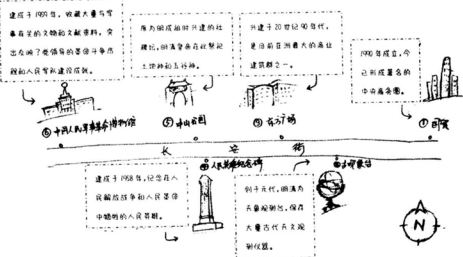 建成于1959年，收藏大量与军
事有关的文物和文献资料，突
出反映了党领导的革命斗争历
程和人民军队建设成就。
原为明成祖时兴建的社
稷坛，明清皇帝在此祭祀
土地神和五谷神。
兴建于20世纪90年代，
是目前亚洲最大的商业
建筑群之一。
1990年成立，今
已形成著名的
中央商务圈。
中国人民革命军事博物馆
中山公园
东方广场
国贸
长安街
人民英雄纪念碑
古观象台
建成于1958年，纪念在人
民解放战争和人民革命
中牺牲的人民英雄。
创于元代，明清为
天象观测台，保存
大量古代天文观
测仪器。
N